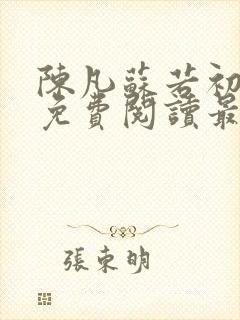 陳凡蘇若初
免費閱讀最
張東明